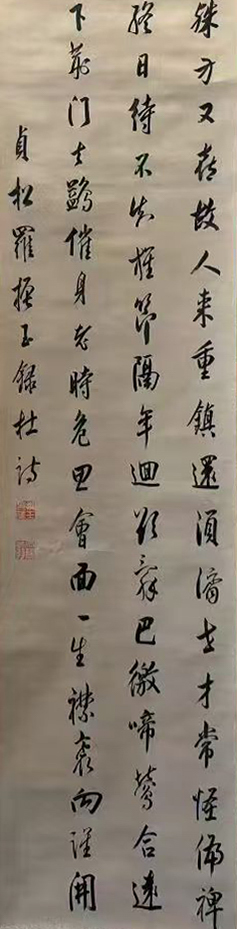 殊方又喜故人来重鎮還須濟世才常怪偏裨
終日待不知旌節隔年迴欲辭巴徼啼鶯合遠
下荊门去鷁催身老時危思會面一生襟袌向誰開
貞松羅振玉錄杜詩